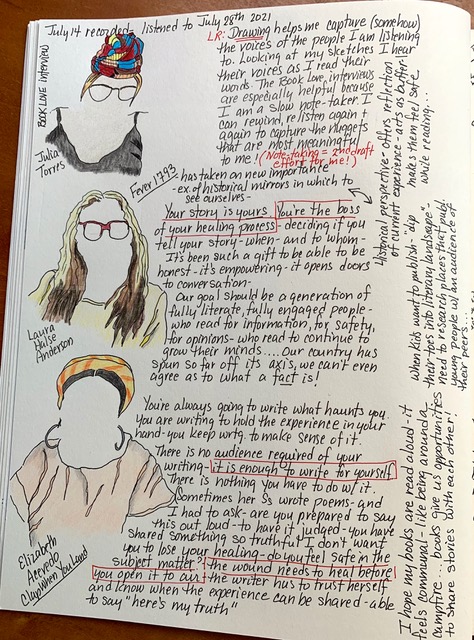 July 14 recorded - listened to July 28th 2021
LR: Drawing helps me capture (somehow)
the voices of the people I am listening
to. Looking at my sketches I hear
their voices as I read their
words. The Book Love interviews
are especially helpful because
I am a slow note-taker. I
can rewind, re listen again &
again to capture the nuggets
that are most meaningful
to me! (Note-taking = 2nd draft
effort for me!)
BOOK LOVE interview
Julia
Torres
Fever 1793 has taken on new importance
- ex. of historical mirrors in which to
see ourselves -
Your story is yours. You're the boss
of your healing process - deciding if you
tell your story - when - and to whom -
It's been such a gift to be able to be
honest - it's empowering - it opens doors
to conversation -
Our goal should be a generation of
fully literate, fully engaged people -
who read for information, for safety,
for opinions - who read to continue to
grow their minds.... Our country has
spun so far off its axis, we can't even
agree as to what a fact is!
Laura
Halse
Anderson
You're always going to write what haunts you.
You are writing to hold the experience in your
hand - you keep wrtg. to make sense of it.
There is no audience required of your
writing - it is enough to write for yourself
There is nothing you have to do w/ it.
Sometimes her Ss wrote poems - and
I had to ask - are you prepared to say
this out loud - to have it judged - you have
shared something so truthful I don't want
you to lose your healing - do you feel safe in the
subject matter? the wound needs to heal before
you open it to air - the writer has to trust herself
and know when the experience can be shared - able
to say "here's my truth"
Elizabeth
Acevedo
Clap When You Land
Historical perspective - offers reflection
of current experience - acts as buffer -
makes them feel safe
while reading...
When kids want to publish - dip
their toes into literary landscape"
need to research places that publ.
young people w/ an audience of
their peers.
I hope my books are read aloud - it
feels communal - like being around a
campfire... books give us opportunities
to share stories with each other!